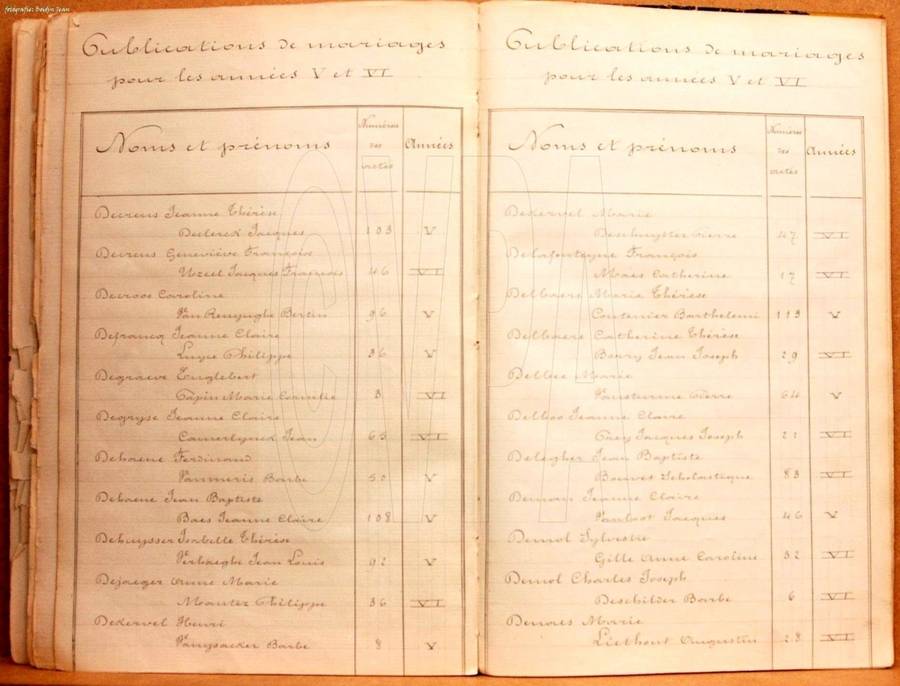 fotografie: Boidyn Jean
Publications de mariages
pour les années V et VI
Noms et prénoms
Numéros des actes
Années
Decreus Jeanne Thérèse
Declerck Jacques 103 V
Decreus Geneviève Françoise
Uzeel Jacques François 46 VI
Decroos Caroline
Van Renynghe Bertin 96 V
Defrancq Jeanne Claire
Luyce Philippe 36 V
Degraeve Englebert
Marie Cornelie 3 VI
Degryse Jeanne Claire
Camerlynck Jean 63 VI
Dehaene Ferdinand
Barbe 50 V
Dehaene Jean Baptiste
Baes Jeanne Claire 108 V
Dehuysser Isabelle Thérèse
Verhaeghe Jean Louis 92 V
Dejaeger Anne Marie
Philippe 36 VI
Dekervel Henri
Barbe 8 V
Publications de mariages
pour les années V et VI
Noms et prénoms
Numéros des actes
Années
Dekervel Marie
Deschuytter Pierre 47 VI
Delafonteyne François
Maes Catherine 17 VI
Delbaere Marie Thérèse
Coutenier Barthelemi 113 V
Delbaere Catherine Thérèse
Bourry Jean Joseph 29 VI
Marie
Pierre 64 V
Delboo Jeanne Claire
Jacques Joseph 21 VI
Delegher Jean Baptiste
Scholastique 83 VI
Deman Jeanne Claire
Jacques 46 V
Demol Sylvestre
Gille Anne Caroline 32 VI
Demol Charles Joseph
Deschilder Barbe 6 VI
Denaes Marie
Liethout Augustin 28 VI